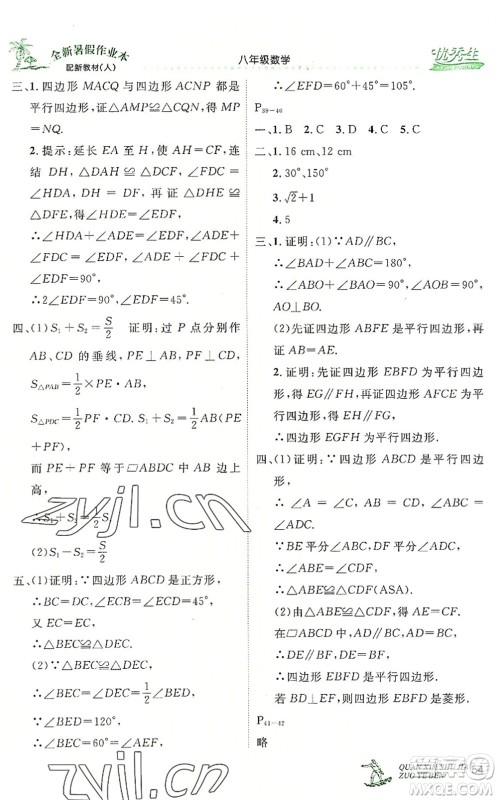 全新暑假作业本
配新教材(人)
八年级数学
优秀生
三、1. 四边形 MACQ 与四边形 ACNP 都是
平行四边形，证△AMP≌△CQN，得 MP
=NQ.
2. 提示：延长 EA 至 H，使 HA=FC，连接
DH，再证△ADH≌△CDF，得∠FDC=
∠HDA，DH=DF，再证△DHE≌
△DFE，得∠HDE=∠EDF.
∴∠HDA+∠ADE=∠EDF=∠ADE+
∠FDC=∠EDF，而∠ADE+∠EDF+
∠FDC=90°，
∴2∠EDF=90°，∠EDF=45°.
四、(1)S₁+S₂=S/2 证明：过 P 点分别作
AB、CD 的垂线，PE⊥AB，PF⊥CD，
S△PAB=1/2×PE·AB，
S△PDC=1/2PF·CD. S₁+S₂=1/2(PE+
PF)，
而 PE+PF 等于于▱ABDC 中 AB 边上的
高，
∴S₁+S₂=1/2S
(2)S₁-S₂=S/2
五、(1)证明：∵四边形 ABCD 是正方形，
∴BC=DC，∠ECB=∠ECD=45°，
又 EC=EC，
∴△BEC≌△DEC.
(2)∵△BEC≌△DEC，
∴∠BEC=∠DEC=1/2∠BED.
∵∠BED=120°，
∴∠BEC=60°=∠AEF.
∴∠EFD=60°+45°=105°
P39—40
一、1. B 2. C 3. A 4. C 5. C
二、1. 16 cm，12 cm
2. 30°，150°
3. √2+1
4. 5
三、1. 证明：(1)∵AD∥BC，
∴∠BAD+∠ABC=180°，
∴∠ABO+∠BAO=90°，
AO⊥BO.
(2)先证四边形 ABFE 是平行四边形，再
证 AB=AE.
2. 证明：先证四边形 EBFD 为平行四边
形，得 EG∥FH，再证四边形 AFCE 为平
行四边形，得 GF∥EH.
∴四边形 EGFH 为平行四边形.
四、(1)证明：∵四边形 ABCD 是平行四边
形，
∴∠A=∠C，AB=CD，∠ABD=∠CDB.
∵BE 平分∠ABD，DF 平分∠CDB，
∴∠ABE=∠CDF，
∴△ABE≌△CDF(ASA).
(2)由△ABE≌△CDF，得 AE=CF，
在▱ABCD 中，AD∥BC，AD=BC，
∴DE∥BF，DE=BF，
∴四边形 EBFD 是平行四边形.
若 BD⊥EF，则四边形 EBFD 是菱形.
P41—42
略
zyjl.cn
zyjl.cn